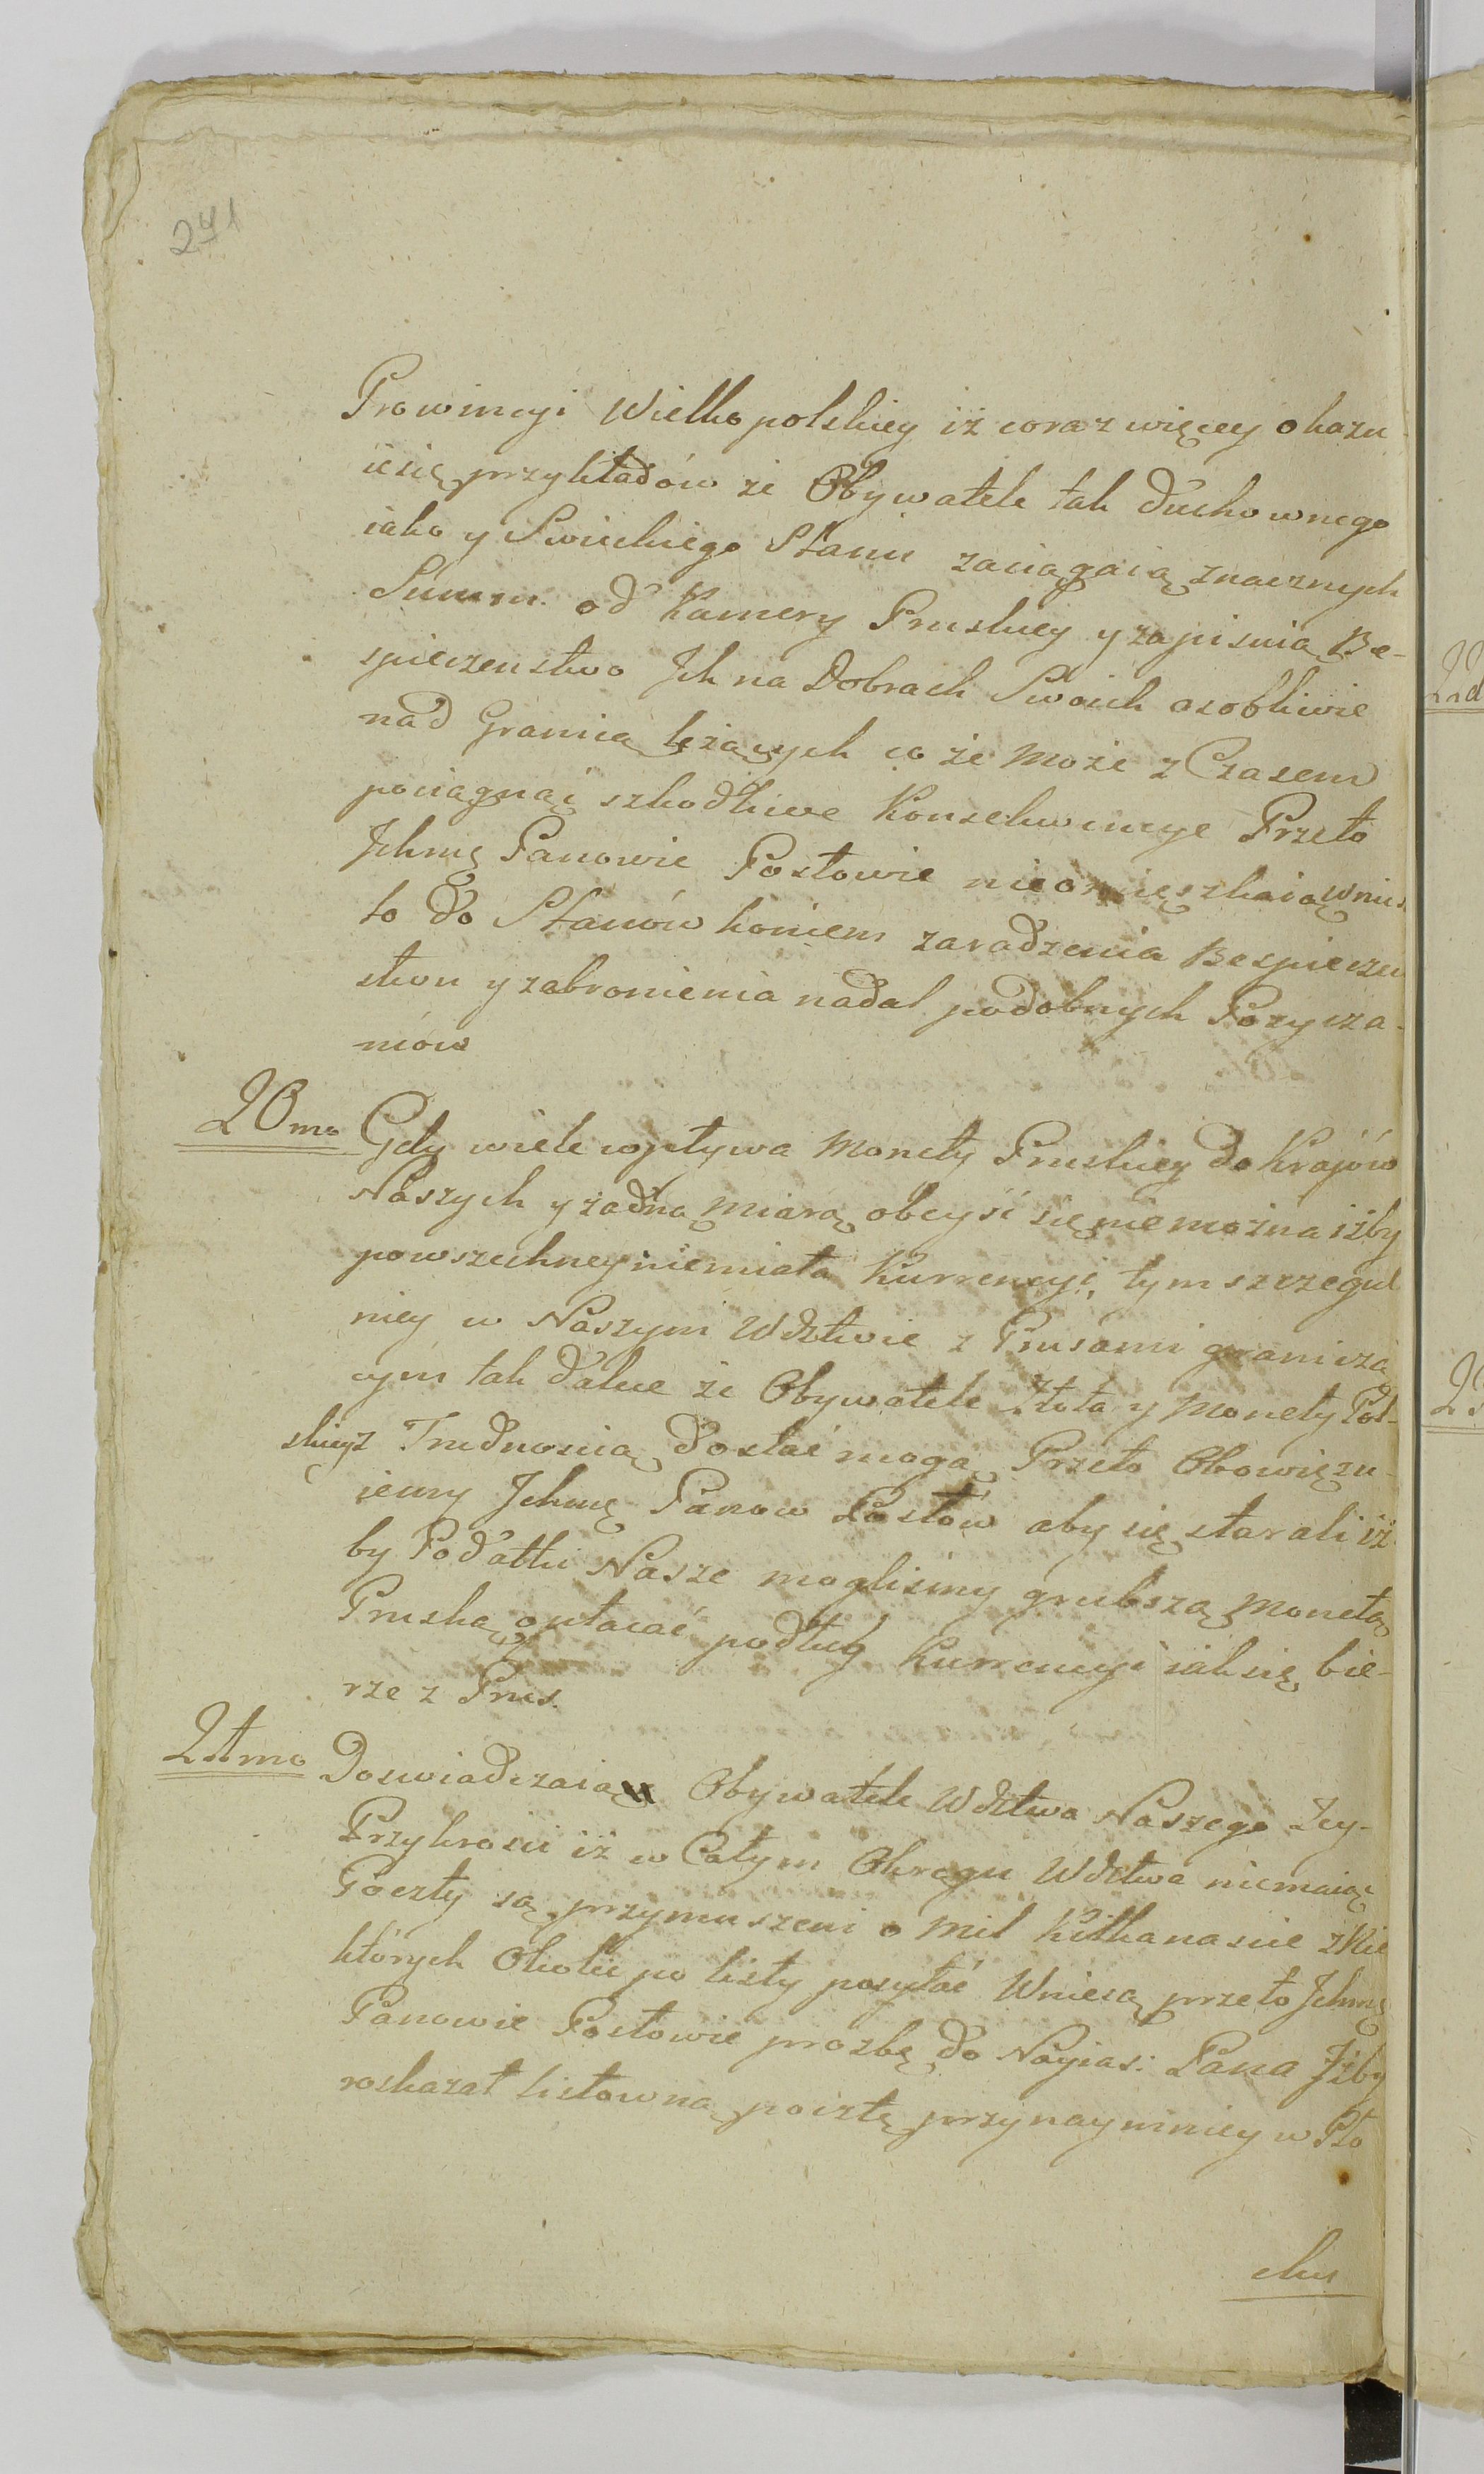 241
Prowincyi Wielkopolskiey iż coraz więcey okazu
iesię przykładów że Obywatele tak duchownego
iako y Swieckiego Stanu zaciągaią znacznych
Summ od Kamery Pruskiey y zapisuią Be-
spieczenstwo Jch na Dobrach Swoich osobliwie
nad Granicą leżących co że może z Czasem
pociągnąć szkodliwe Konsekwencye Przeto
Jchmę Panowie Posłowie nieomięszkaią wnieś
to do Stanów koniem zaradzenia Bespieczeń
stwu y zabronienia nadal podobnych Pozycza-
niow
20mo Gdy wiele wpływa Monety Pruskiey do Krajów
Naszych y żadną miarą obeyść się niemożna iżby
powszechney niemiała Kurrencyi, tym szczegul
niey w Naszym Wdztwie z Prusami granicza
cym tak dalece że Obywatele złota y Monety Pol-
skiey z Trudnoscią dostać mogą Przeto Obowięzu-
iemy Jchmę Panow Posłów aby się starali iż
by Podatki Nasze moglismy grubszą Monetą
Pruską opłacać podług Kurrencyi iak się bie-
rze z Prus.
21mo Doswiadczaią Obywatele Wdztwa Naszego Tey
Przykrosci iż w Całym Okręgu Wdztwa niemaiąc
Poczty są przymuszeni o mil Kilkanascie z Nie
których Okolic po listy posyłać Wniesą przeto Jchmę
Panowie Posłowie prozbę do Nayias: Pana Jżby
roskazał listowną pocztę przynaymniey w Pło
cku
22d